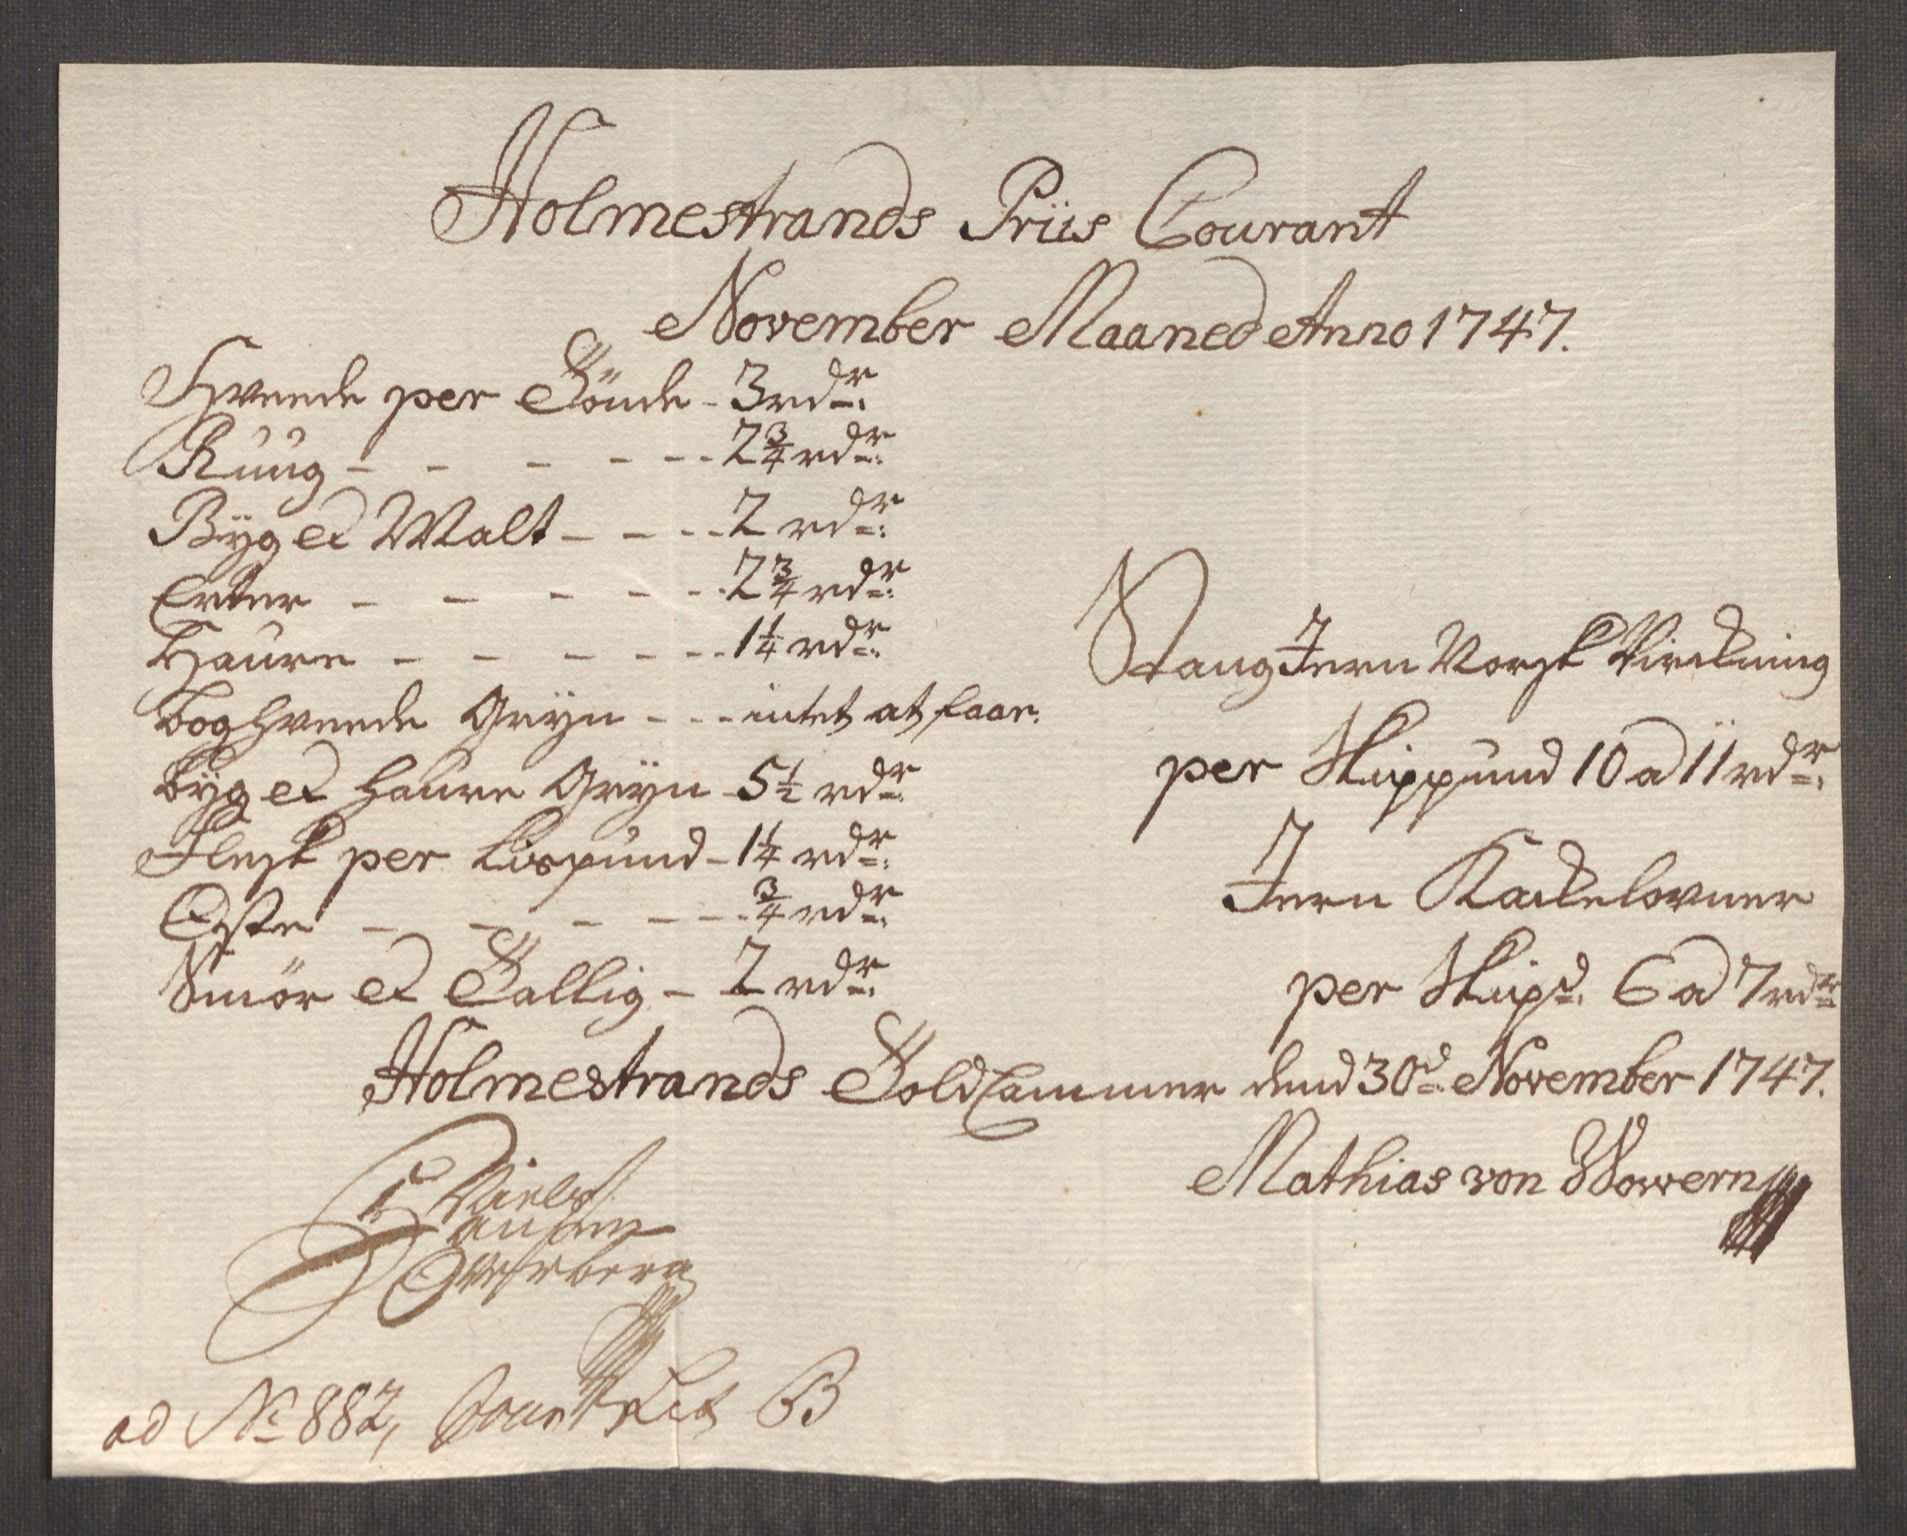 Holmestrands Priis Courant
November Maaned Anno 1747.
Hveede per Tönde - 3 rdr:
Ruug - - - - - - 2 3/4 rdr:
Byg et Malt - - - - 2 rdr:
Erter - - - - - - 2 3/4 rdr:
Haure - - - - - - 1 1/4 rdr:
boghveede Gryn - - - intet at faae.
byg et haure Gryn - 5 1/2 rdr:
Flesk per Lispund - 1 1/4 rdr:
Oste - - - - - - 3/4 rdr:
Smör et Tallig - 2 rdr:
Stang Jern Norsk Virckning
per Skippund 10 a 11 rdr:
Jern Kackelovner
per Skipd. 6 a 7 rdr
Holmestrands Told Cammer dend 30d. November 1747.
Mathias von Wowern
Niels
Hansen
ad No 882, Lit B